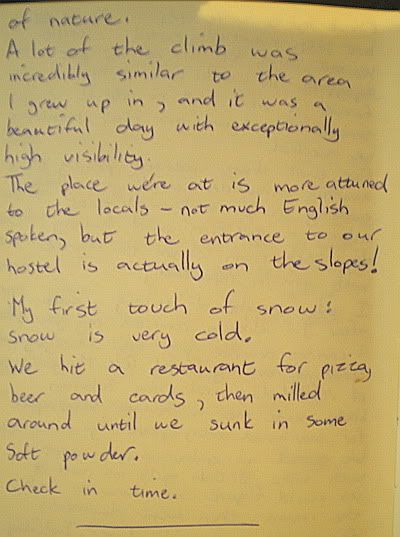 of nature.
A lot of the climb was
incredibly similar to the area
I grew up in, and it was a
beautiful day with exceptionally
high visibility.
The place we're at is more attuned
to the locals – not much English
spoken, but the entrance to our
hostel is actually on the slopes!
My first touch of snow:
snow is very cold.
We hit a restaurant for pizza,
beer and cards, then milled
around until we sunk in some
soft powder.
Check in time.